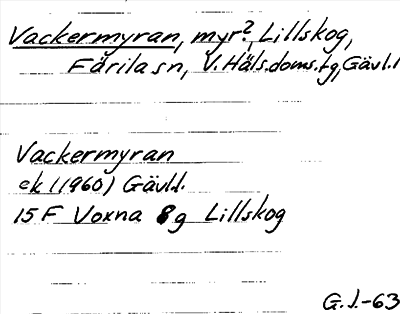 Vackermyran, myr?, Lillskog,
Färila sn, V. Häls. doms. tg, Gävl. l
Vackermyran
ek (1960) Gävl.l.
15 F Voxna 8g Lillskog
G.J.-63